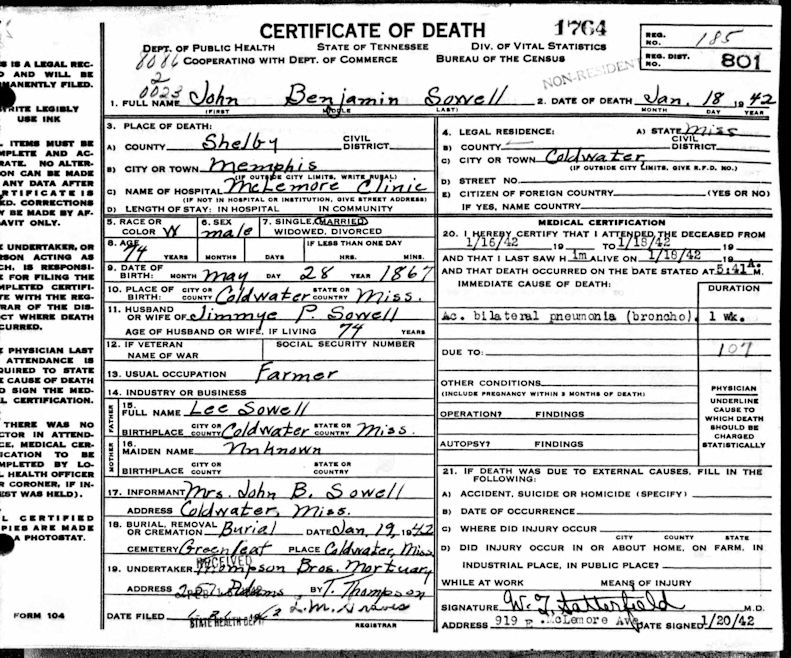 CERTIFICATE OF DEATH
1764
REG. NO. 185
DEPT. OF PUBLIC HEALTH STATE OF TENNESSEE DIV. OF VITAL STATISTICS
8086 COOPERATING WITH DEPT. OF COMMERCE BUREAU OF THE CENSUS
REG. DIST. 801
NON-RESIDENT
2
0023
1. FULL NAME John Benjamin Sowell 2. DATE OF DEATH Jan. 18 1942
(FIRST) (MIDDLE) (LAST) MONTH DAY YEAR
3. PLACE OF DEATH:
A) COUNTY Shelby CIVIL DISTRICT
B) CITY OR TOWN Memphis
(IF OUTSIDE CITY LIMITS, WRITE RURAL)
C) NAME OF HOSPITAL McLemore Clinic
(IF NOT IN HOSPITAL OR INSTITUTION, GIVE STREET ADDRESS)
D) LENGTH OF STAY: IN HOSPITAL IN COMMUNITY
4. LEGAL RESIDENCE: A) STATE Miss
B) COUNTY CIVIL DISTRICT
C) CITY OR TOWN Coldwater
(IF OUTSIDE CITY LIMITS, GIVE R.F.D. NO.)
D) STREET NO.
E) CITIZEN OF FOREIGN COUNTRY (YES OR NO)
IF YES, NAME COUNTRY
5. RACE OR COLOR W 6. SEX male 7. SINGLE, MARRIED, WIDOWED, DIVORCED
8. AGE 74 YEARS MONTHS DAYS IF LESS THAN ONE DAY HRS. MINS.
9. DATE OF BIRTH: MONTH May DAY 28 YEAR 1867
10. PLACE OF BIRTH: CITY OR COUNTY Coldwater STATE OR COUNTRY Miss.
11. HUSBAND OR WIFE OF Jimmye P. Sowell
AGE OF HUSBAND OR WIFE, IF LIVING 74 YEARS
12. IF VETERAN NAME OF WAR SOCIAL SECURITY NUMBER
13. USUAL OCCUPATION Farmer
14. INDUSTRY OR BUSINESS
FATHER
15. FULL NAME Lee Sowell
BIRTHPLACE CITY OR COUNTY Coldwater STATE OR COUNTRY Miss.
MOTHER
16. MAIDEN NAME Unknown
BIRTHPLACE CITY OR COUNTY STATE OR COUNTRY
17. INFORMANT Mrs. John B. Sowell
ADDRESS Coldwater, Miss.
18. BURIAL, REMOVAL OR CREMATION Burial DATE Jan. 19, 1942
CEMETERY Greenleaf PLACE Coldwater, Miss
RECEIVED
19. UNDERTAKER Thompson Bros. Mortuary
ADDRESS BY T. Thompson
DATE FILED
STATE HEALTH DEPT. REGISTRAR
MEDICAL CERTIFICATION
20. I HEREBY CERTIFY THAT I ATTENDED THE DECEASED FROM
1/16/42 19 TO 1/18/42 19
AND THAT I LAST SAW H im ALIVE ON 1/18/42 19
AND THAT DEATH OCCURRED ON THE DATE STATED AT 5:41 A. M.
IMMEDIATE CAUSE OF DEATH: DURATION
Ac. bilateral pneumonia (broncho). 1 wk.
DUE TO: 107
OTHER CONDITIONS
(INCLUDE PREGNANCY WITHIN 3 MONTHS OF DEATH)
OPERATION? FINDINGS
AUTOPSY? FINDINGS
PHYSICIAN
UNDERLINE CAUSE TO WHICH DEATH SHOULD BE CHARGED STATISTICALLY
21. IF DEATH WAS DUE TO EXTERNAL CAUSES, FILL IN THE FOLLOWING:
A) ACCIDENT, SUICIDE OR HOMICIDE (SPECIFY)
B) DATE OF OCCURRENCE
C) WHERE DID INJURY OCCUR
CITY COUNTY STATE
D) DID INJURY OCCUR IN OR ABOUT HOME, ON FARM, IN
INDUSTRIAL PLACE, IN PUBLIC PLACE?
WHILE AT WORK MEANS OF INJURY
SIGNATURE W. T. Satterfield M.D.
ADDRESS 919 E. McLemore Ave DATE SIGNED 1/20/42
S IS A LEGAL REC-
D AND WILL BE
MANENTLY FILED.
WRITE LEGIBLY
USE INK
ITEMS MUST BE
MPLETE AND AC-
RATE. NO ALTER-
ON CAN BE MADE
ANY DATA AFTER
RTIFICATE IS
ED. CORRECTIONS
Y BE MADE BY AF-
AVIT ONLY.
E UNDERTAKER, OR
RSON ACTING AS
CH, IS RESPONSI-
E FOR FILING THE
MPLETED CERTIFI-
TE WITH THE REG-
RAR OF THE DIS-
CT WHERE DEATH
CURRED.
E PHYSICIAN LAST
ATTENDANCE IS
QUIRED TO STATE
E CAUSE OF DEATH
D SIGN THE MED-
L CERTIFICATION.
THERE WAS NO
CTOR IN ATTEND-
CE, MEDICAL CER-
ICATION TO BE
MPLETED BY LO-
L HEALTH OFFICER
R CORONER, IF IN-
EST WAS HELD).
L CERTIFIED
PIES ARE MADE
A PHOTOSTAT.
FORM 104